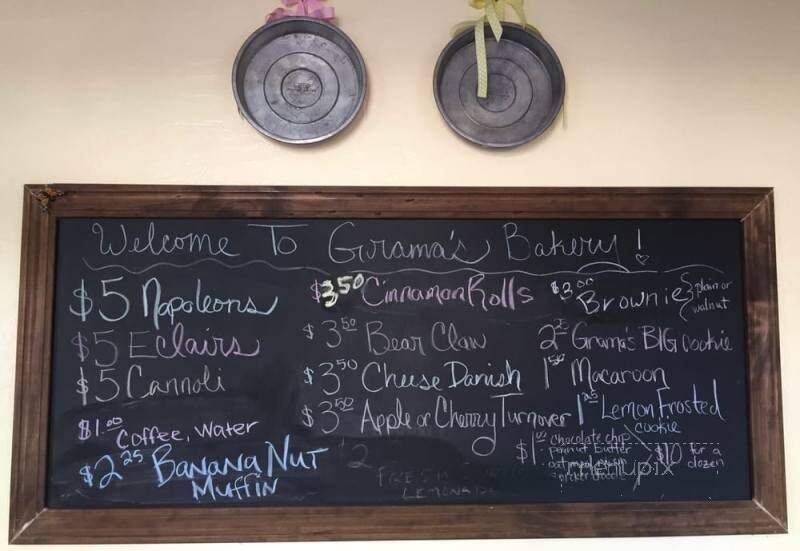 Welcome To Grama's Bakery!
$5 Napoleons
$5 Eclairs
$5 Cannoli
$1.00 Coffee, Water
$2.25 Banana Nut
Muffin
$3.50 Cinnamon Rolls
$3.50 Bear Claw
$3.50 Cheese Danish
$3.50 Apple or Cherry Turnover
$2
FRESH
LEMONADE
$3.00 Brownie { plain or
walnut
2.25 Grama's BIG cookie
1.50 Macaroon
1.25 Lemon Frosted
cookie
$1.00 chocolate chip
peanut butter
$10 for a
dozen
menupix